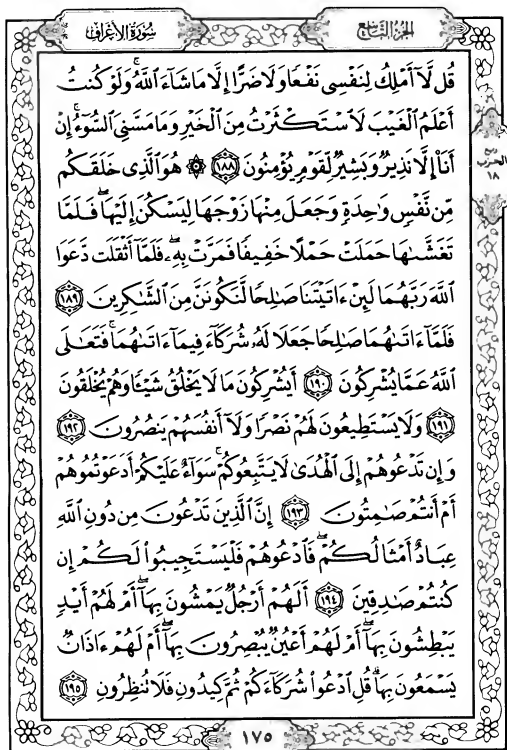 الجزء التاسع
سورة الأعراف
قُل لَّآ أَمْلِكُ لِنَفْسِى نَفْعًا وَلَا ضَرًّا إِلَّا مَا شَآءَ ٱللَّهُ ۚ وَلَوْ كُنتُ
أَعْلَمُ ٱلْغَيْبَ لَٱسْتَكْثَرْتُ مِنَ ٱلْخَيْرِ وَمَا مَسَّنِىَ ٱلسُّوٓءُ ۚ إِنْ
أَنَا۠ إِلَّا نَذِيرٌ وَبَشِيرٌ لِّقَوْمٍ يُؤْمِنُونَ ١٨٨ ۞ هُوَ ٱلَّذِى خَلَقَكُم
مِّن نَّفْسٍ وَٰحِدَةٍ وَجَعَلَ مِنْهَا زَوْجَهَا لِيَسْكُنَ إِلَيْهَا ۖ فَلَمَّا
تَغَشَّىٰهَا حَمَلَتْ حَمْلًا خَفِيفًا فَمَرَّتْ بِهِۦ ۖ فَلَمَّآ أَثْقَلَت دَّعَوَا
ٱللَّهَ رَبَّهُمَا لَئِنْ ءَاتَيْتَنَا صَٰلِحًا لَّنَكُونَنَّ مِنَ ٱلشَّٰكِرِينَ ١٨٩
فَلَمَّآ ءَاتَىٰهُمَا صَٰلِحًا جَعَلَا لَهُۥ شُرَكَآءَ فِيمَآ ءَاتَىٰهُمَا ۚ فَتَعَٰلَى
ٱللَّهُ عَمَّا يُشْرِكُونَ ١٩٠ أَيُشْرِكُونَ مَا لَا يَخْلُقُ شَيْـًٔا وَهُمْ يُخْلَقُونَ
١٩١ وَلَا يَسْتَطِيعُونَ لَهُمْ نَصْرًا وَلَآ أَنفُسَهُمْ يَنصُرُونَ ١٩٢
وَإِن تَدْعُوهُمْ إِلَى ٱلْهُدَىٰ لَا يَتَّبِعُوكُمْ ۚ سَوَآءٌ عَلَيْكُمْ أَدَعَوْتُمُوهُمْ
أَمْ أَنتُمْ صَٰمِتُونَ ١٩٣ إِنَّ ٱلَّذِينَ تَدْعُونَ مِن دُونِ ٱللَّهِ
عِبَادٌ أَمْثَالُكُمْ ۖ فَٱدْعُوهُمْ فَلْيَسْتَجِيبُوا۟ لَكُمْ إِن
كُنتُمْ صَٰدِقِينَ ١٩٤ أَلَهُمْ أَرْجُلٌ يَمْشُونَ بِهَآ ۖ أَمْ لَهُمْ أَيْدٍ
يَبْطِشُونَ بِهَآ ۖ أَمْ لَهُمْ أَعْيُنٌ يُبْصِرُونَ بِهَآ ۖ أَمْ لَهُمْ ءَاذَانٌ
يَسْمَعُونَ بِهَا ۗ قُلِ ٱدْعُوا۟ شُرَكَآءَكُمْ ثُمَّ كِيدُونِ فَلَا تُنظِرُونِ ١٩٥
ربع
الحزب
١٨
١٧٥